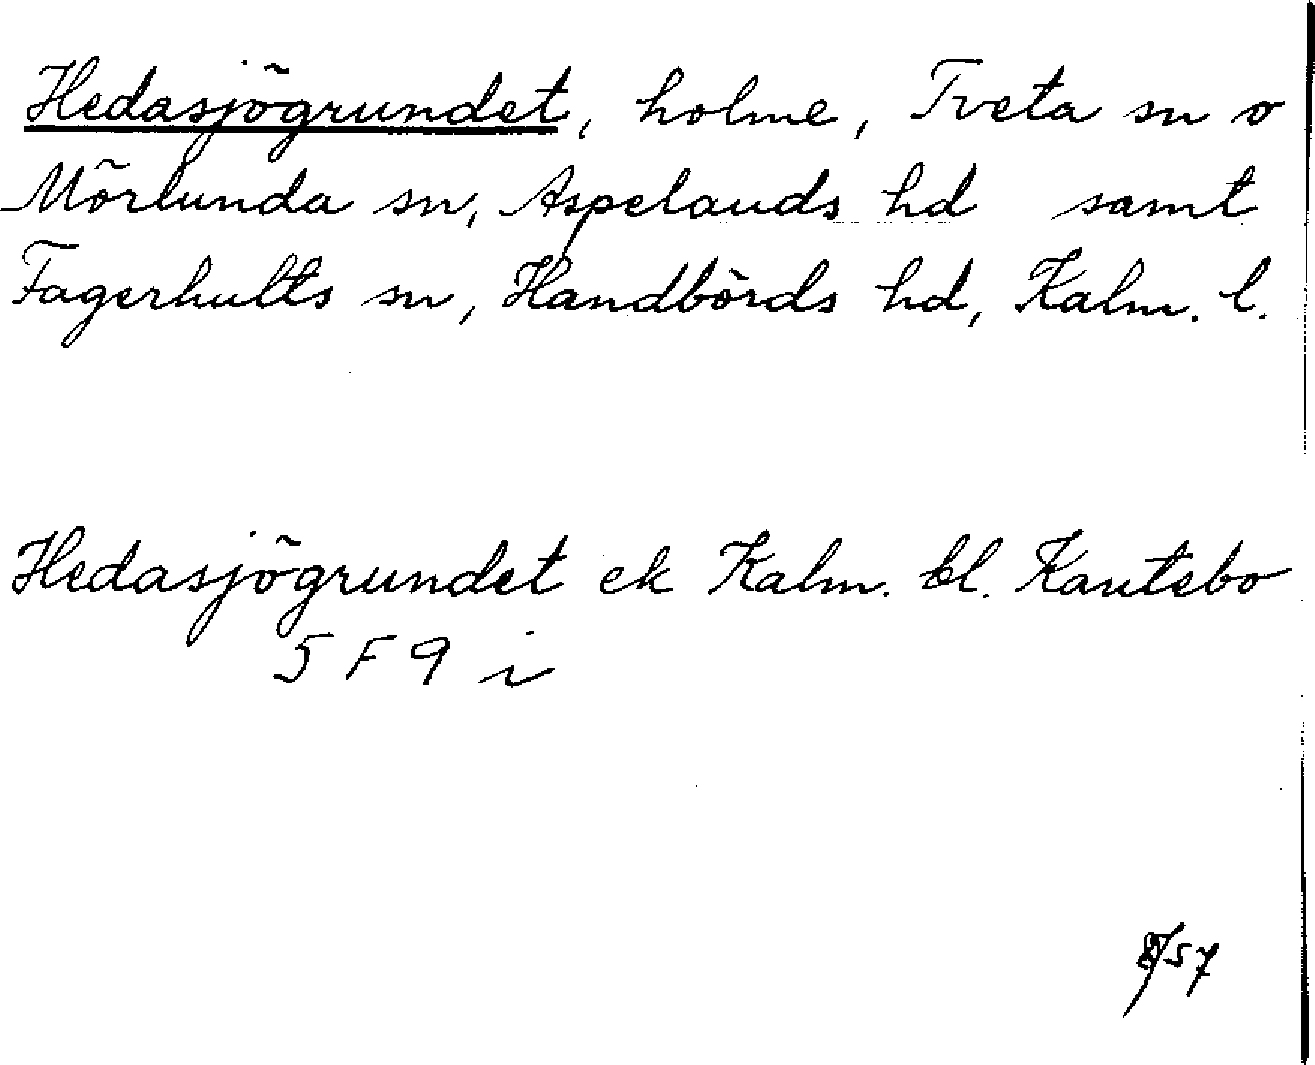 Hedasjögrundet, holme, Tveta sn o
Mörlunda sn, Aspelands hd samt
Fagerhults sn, Handbörds hd, Kalm. l.
Hedasjögrundet ek Kalm. bl. Kautebo
5 F 9 i